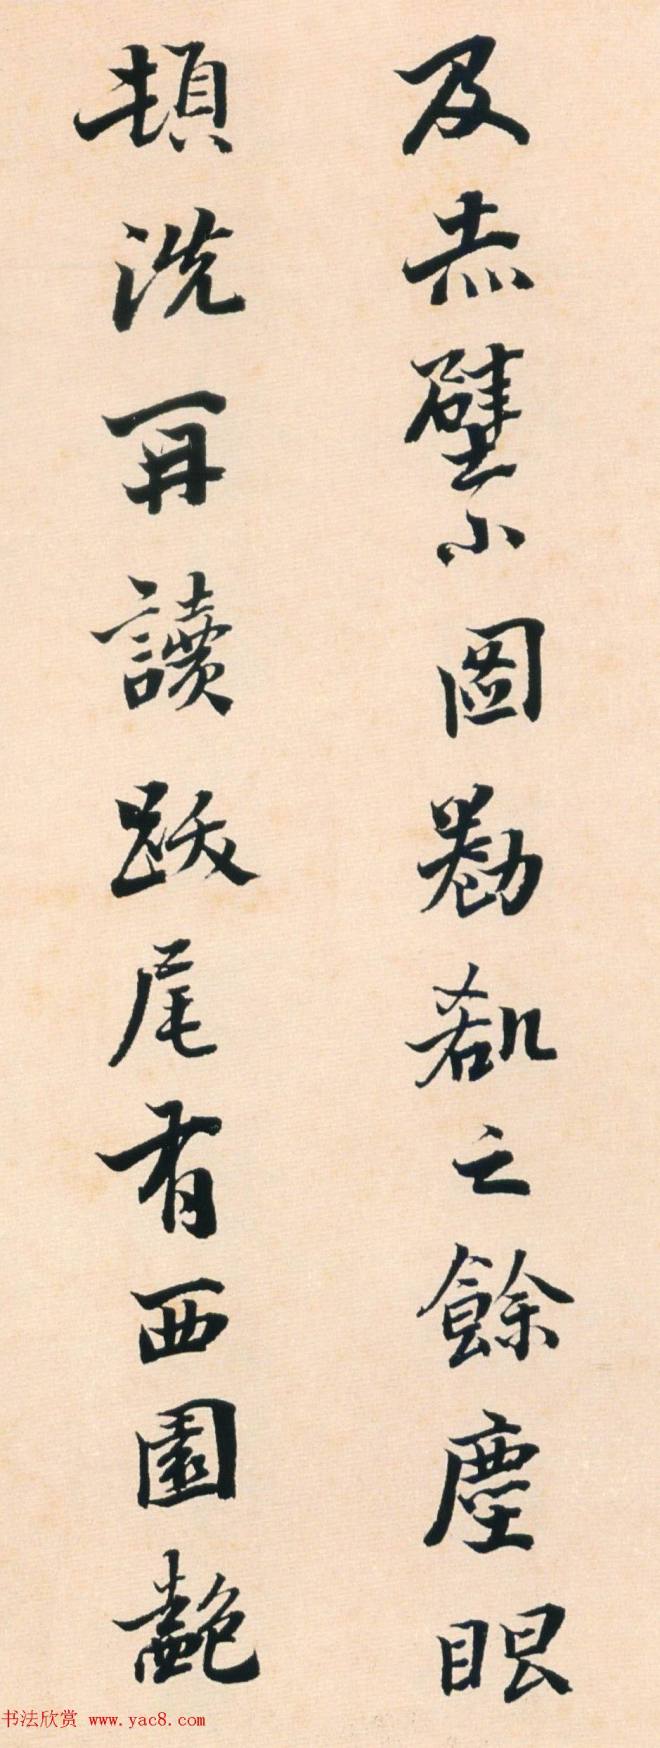 及赤壁小圖勘㔩之餘塵眼
頓洗再讀跋尾有西園豔
书法欣赏 www.yac8.com